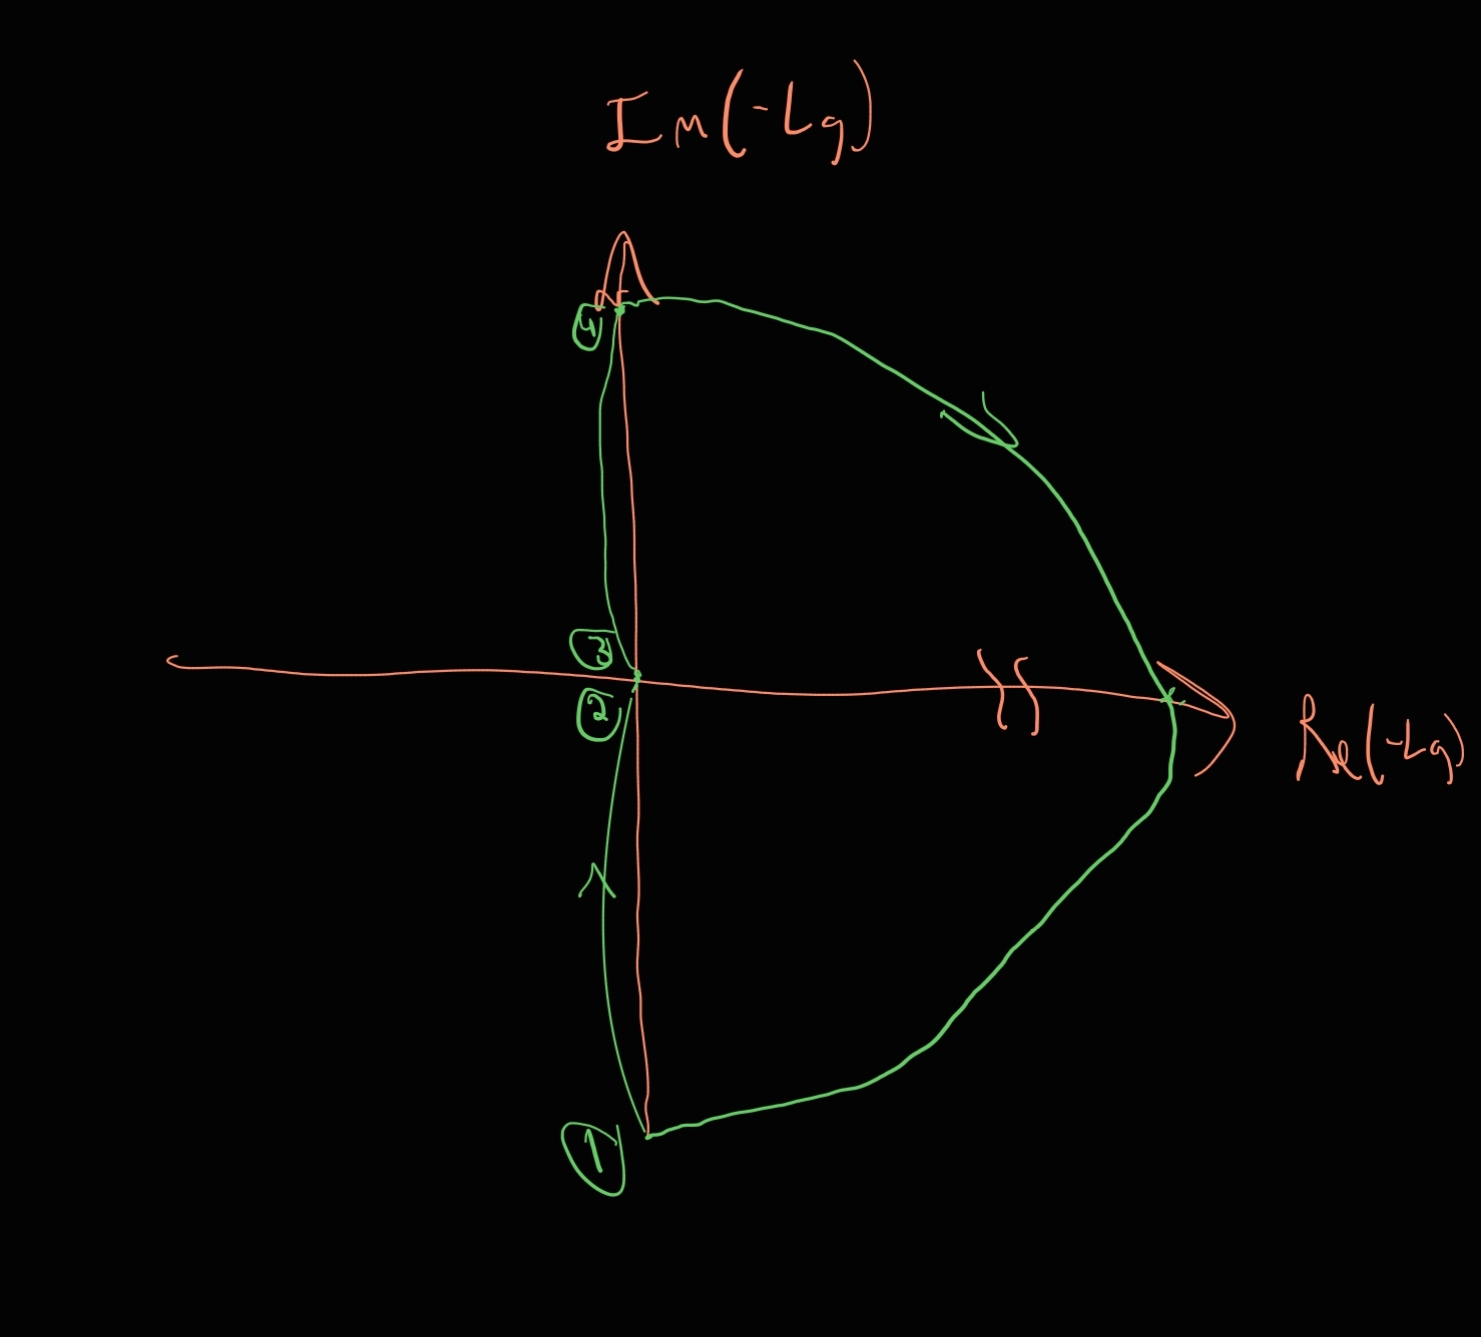 Im(-Lg)
4
3
2
Re(-Lg)
1